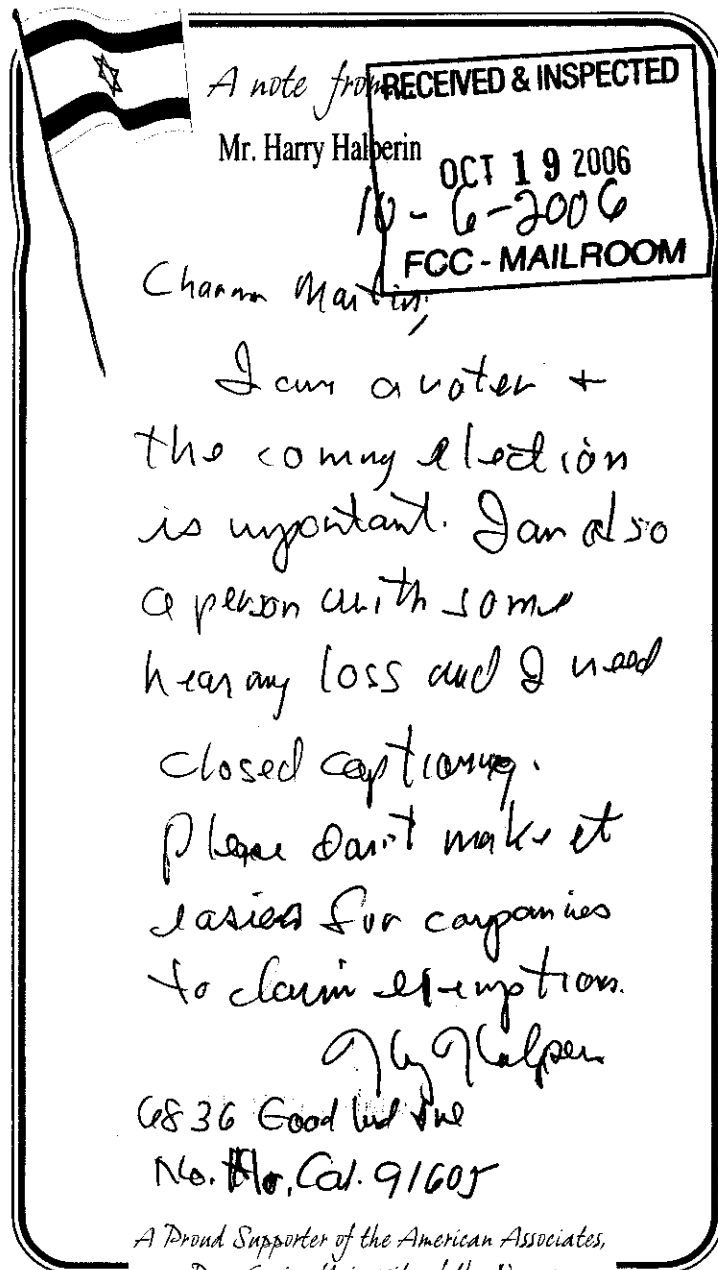 A note from
RECEIVED & INSPECTED
Mr. Harry Halperin
OCT 19 2006
10-6-2006
FCC - MAILROOM
Martin,
I am a voter +
the coming election
is important. I am also
a person with some
hearing loss and I need
closed captioning.
Please don't make it
easier for companies
to claim exemption.
Halperin
6836 Goodland Ave
No. Ho, Cal. 91605
A Proud Supporter of the American Associates,